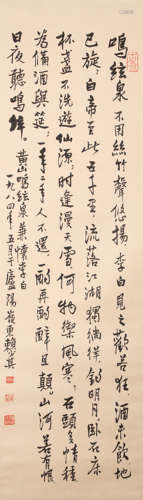 鳴絃泉不用絲竹聲悠揚李白見之歡若狂酒未飲地
已旋白帝至此五千里流落江湖獨徜徉釣明月臥石床
杯盞不洗遊仙源時逢漫天雪何物禦風寒石頭多情種
為備酒與筵一手二手人不還一酌再酌醉且顛山河若有恨
日夜聽鳴絃 黃山鳴絃泉兼懷李白
一九八四年五月于廬陽 嶺東賴少其